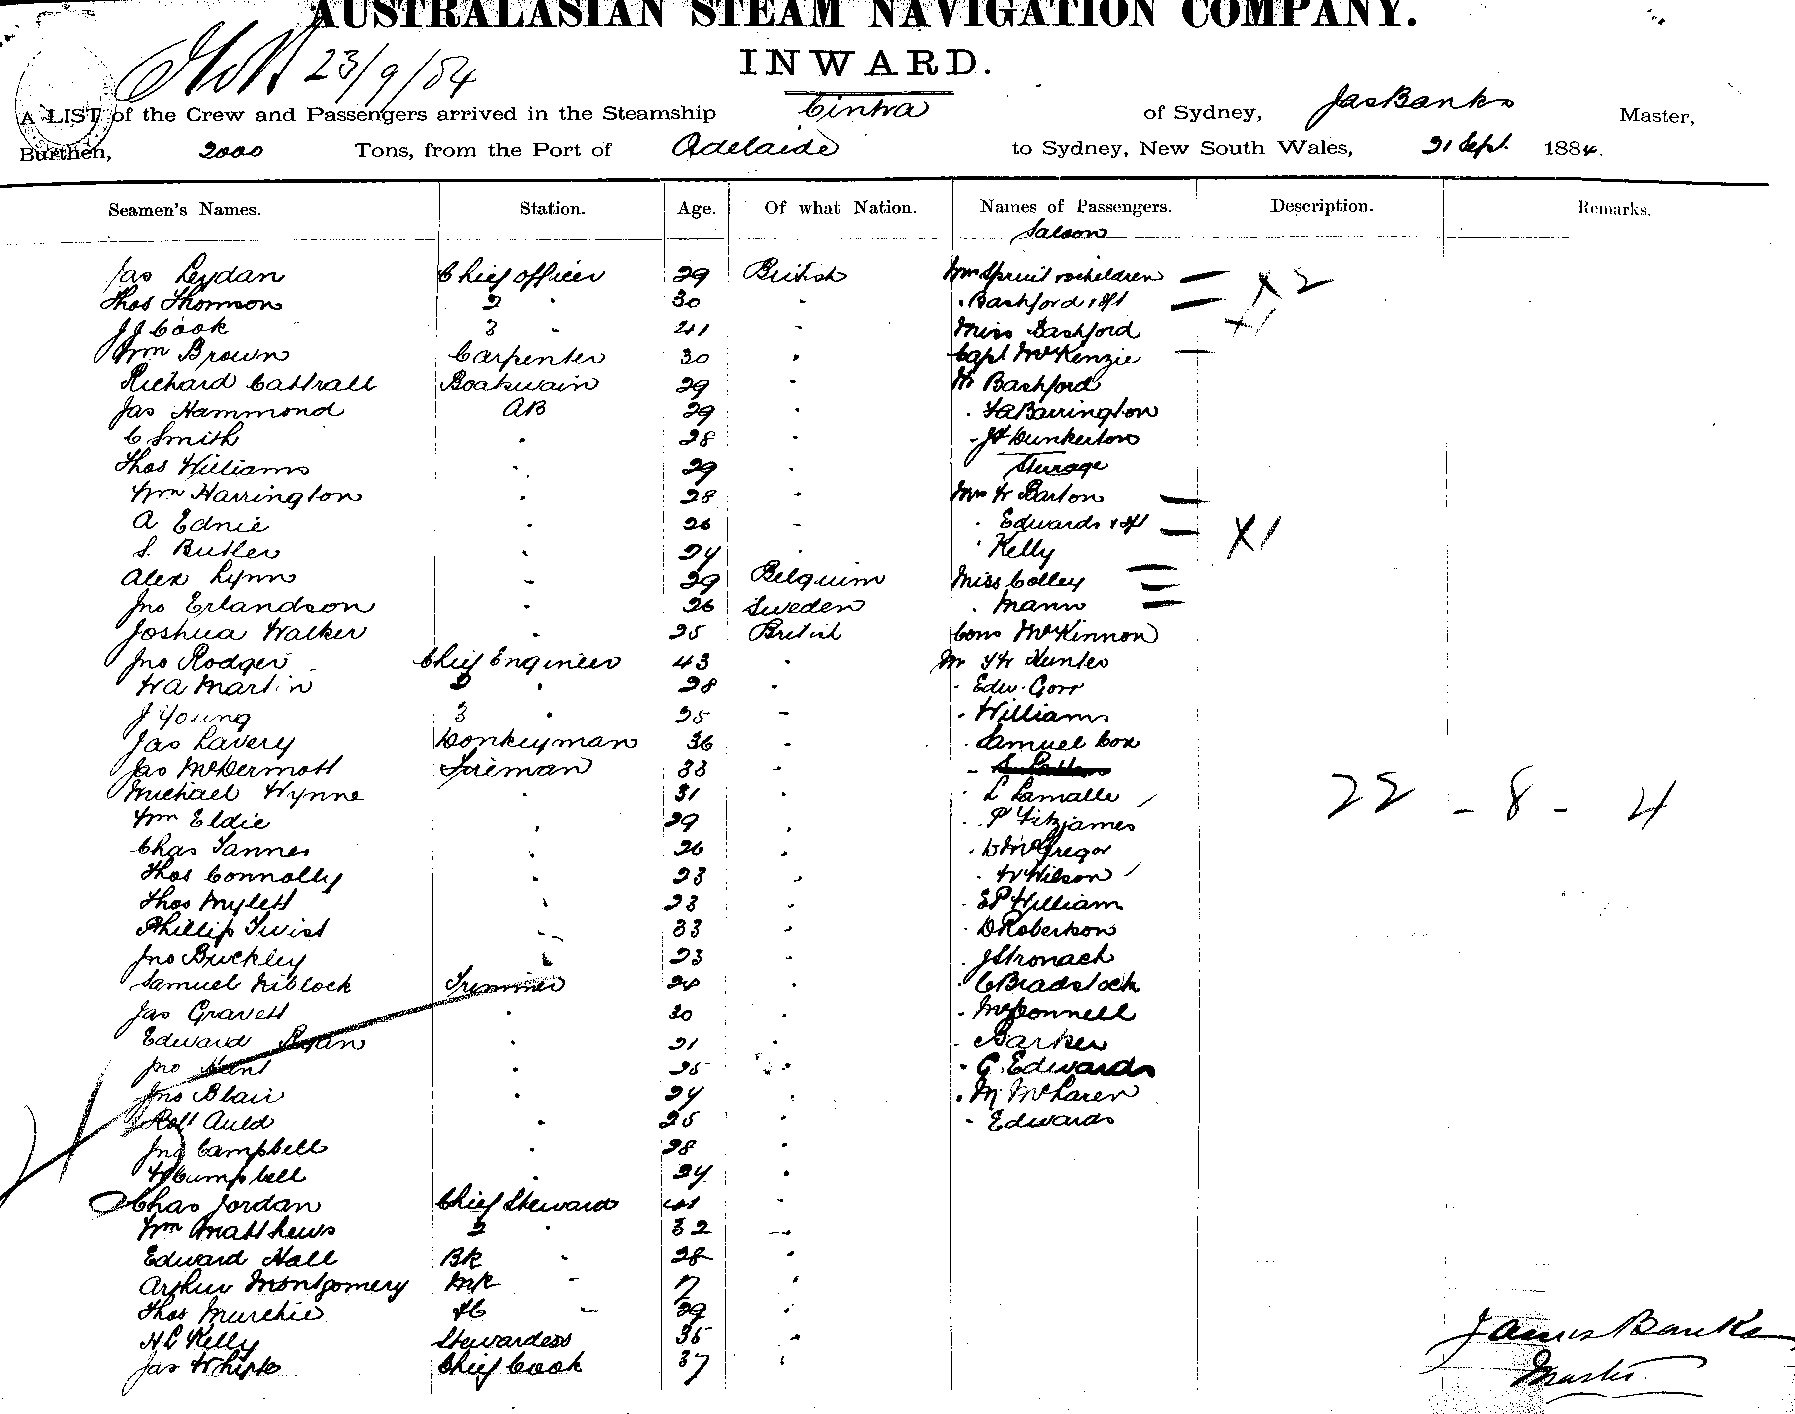 AUSTRALASIAN STEAM NAVIGATION COMPANY.
INWARD.
23/9/84
A LIST of the Crew and Passengers arrived in the Steamship Cintra of Sydney, Jas Banks Master,
Burthen, 2000 Tons, from the Port of Adelaide to Sydney, New South Wales, 21 Sept. 1884.
Seamen's Names. Station. Age. Of what Nation. Names of Passengers. Description. Remarks.
Saloon
Jas Leydan Chief officer 29 British Mrs Spruit children X 2
Thos Thomson 2 " 30 " " Bashford & Sft
J J Cook 3 " 41 " Miss Bashford X1
Wm Brown Carpenter 30 " Capt McKenzie
Richard Cattrall Boatswain 29 " Bashford
Jas Hammond AB 29 " " Barrington
C Smith " 28 " " Dunkerton
Thos Williams " 29 " Sturage
Wm Harrington " 28 " Mrs W Barton
A Ednie " 26 " " Edwards X1
S. Butler " 24 " " Kelly
Alex Lynn " 29 Belguim Miss Colley
Jno Erlandson " 26 Sweden " Mann
Joshua Walker " 25 British Cons McKinnon
Jno Rodger Chief Engineer 43 " Mr Hunter
W A Martin 2 " 28 " " Edw. Gorr
J Young 3 " 25 " " Williams
Jas Lavery Donkeyman 36 " " Samuel Cox
Jas McDermott Fireman 33 " "
Michael Wynne " 31 " " L Lamalle 22 - 8 - 4
Wm Eldie " 29 " " P Fitzjames
Chas Tannes " 26 " " D McGregor
Thos Connolly " 23 " " W Wilson
Thos Mylett " 23 " " E P William
Phillip Twist " 33 " " D Robertson
Jno Buckley " 23 " " J Stronach
Samuel Niblock Trimmer 24 " " C Bradstock
Jas Gravett " 30 " " McConnell
Edward Ryan " 21 " " Barker
Jno " 25 " " G. Edwards
Jno Blair " 24 " " M McLaren
Robt Auld " 25 " " Edwards
Jno Campbell 28 "
Campbell " 24 "
Chas Jordan Chief Steward 41 "
Wm Matthews 2 " 32 "
Edward Hall BK " 28 "
Arthur Montgomery MR "
Thos Murchie " 29 "
H C Kelly Stewardess 35 "
Jas Chief Cook 37 "
James Banks
Master